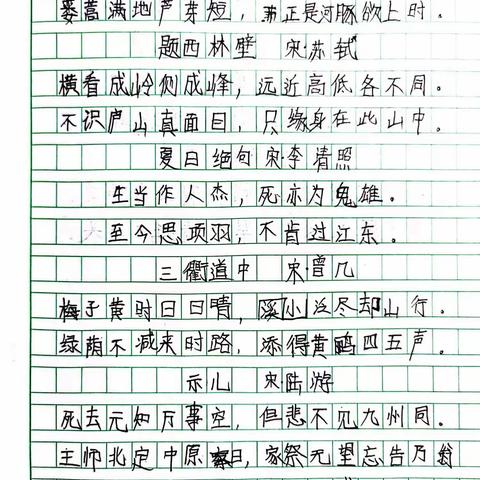 蒌蒿满地芦芽短，正是河豚欲上时。
题西林壁 宋·苏轼
横看成岭侧成峰，远近高低各不同。
不识庐山真面目，只缘身在此山中。
夏日绝句 宋·李清照
生当作人杰，死亦为鬼雄。
至今思项羽，不肯过江东。
三衢道中 宋·曾几
梅子黄时日日晴，溪小泛尽却山行。
绿荫不减来时路，添得黄鹂四五声。
示儿 宋·陆游
死去元知万事空，但悲不见九州同。
王师北定中原日，家祭无望忘告乃翁